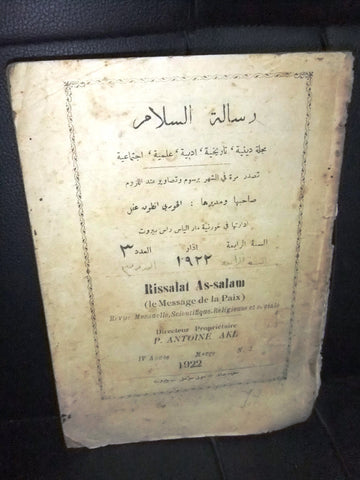 رسالة السلام
مجلة دينية، تاريخية، ادبية، علمية، اجتماعية
تصدر مرة في الشهر برسوم وتصاوير عند اللزوم
صاحبها ومديرها : الخوري انطون عقل
ادارتها في خورنية مار الياس راس بيروت
السنة الرابعة اذار العدد ٣
١٩٢٢
Rissalat As-salam
(le Message de la Paix)
Revue Mensuelle, Scientifique, Religieuse et sociale
Directeur Propriétaire
P. ANTOINE AKL
IV Année Março N. 3
1922